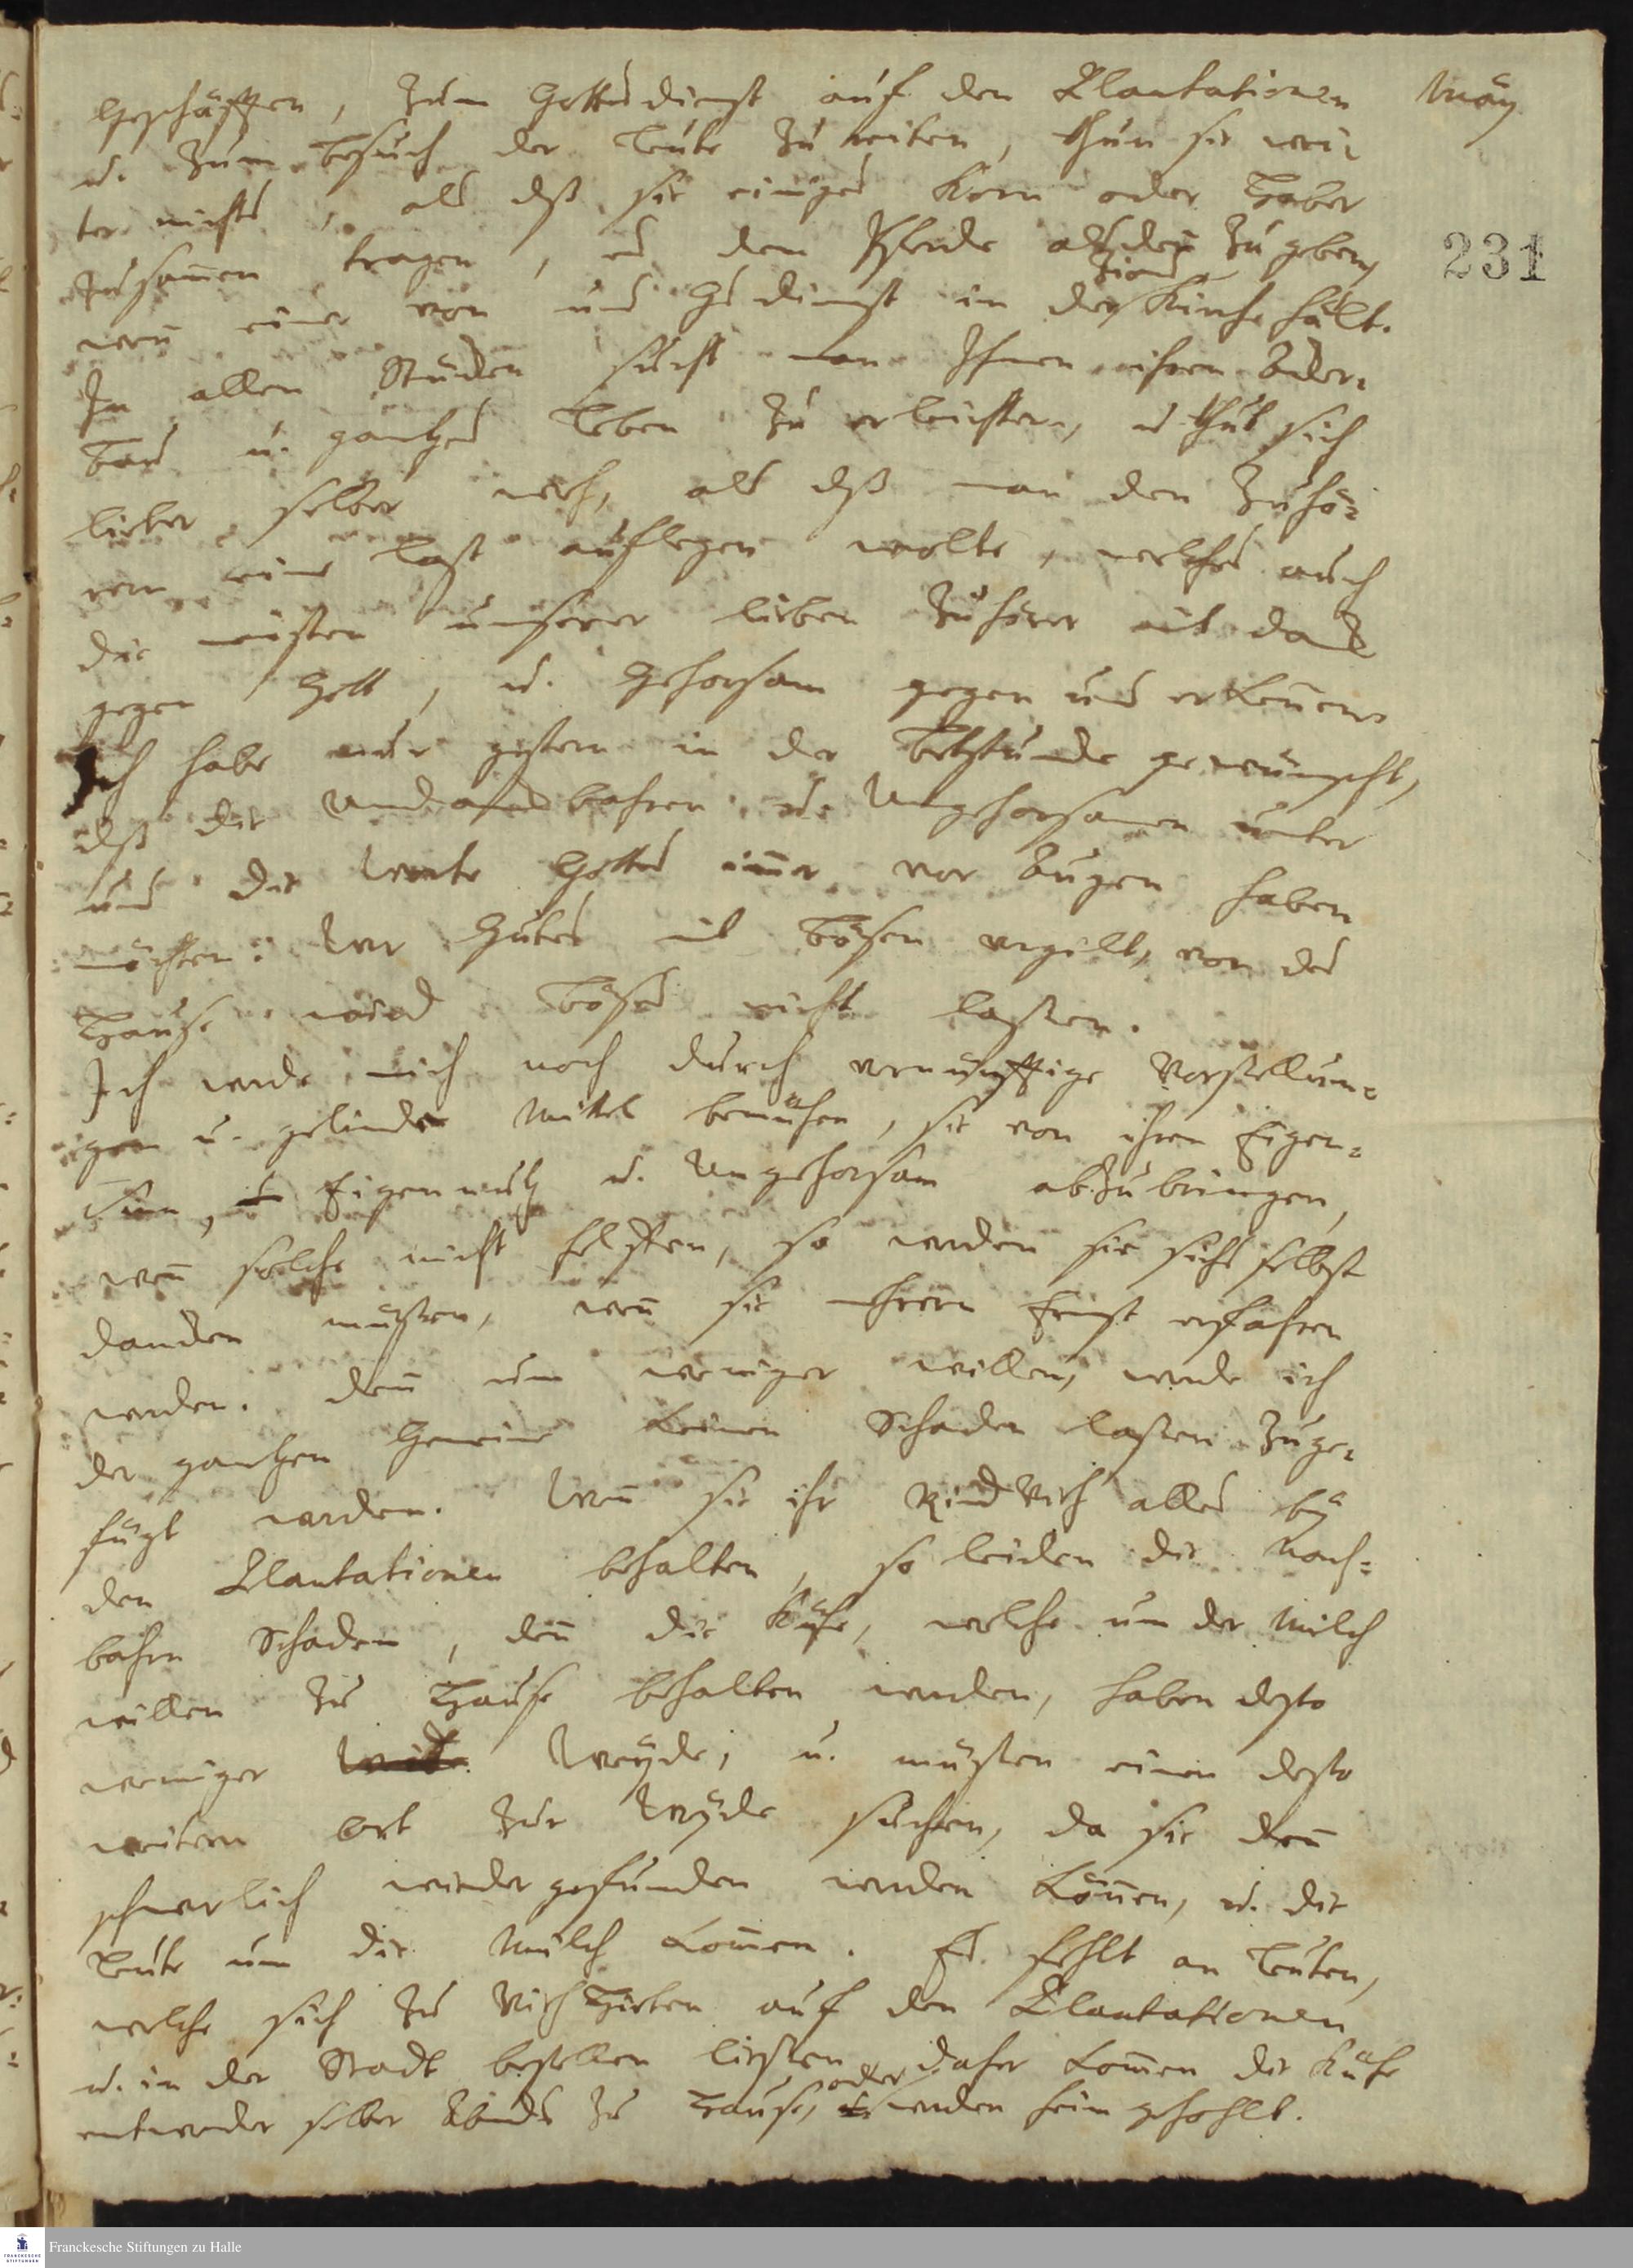 Geschäfften, zum Gottesdienst auf den Plantationen
May
u. zum Besuch der Leute zu reiten, thun sie wei-
ter nichts, als dß sie einiges Korn oder Haber
231
zusam̅en tragen, es dem Pferde alsden̅ zu geben,
wen̅ einer von uns Gdienst in der Zions Kirche hält.
In allen Stücken sucht man Ihnen ihren Acker-
bau u. gantzes Leben zu erleichtern, u. thut sich
lieber selber weh, als dß man den Zuhö-
rern eine Last auflegen wolte, welches auch
die meisten unserer lieben Zuhörer mit Danck
gegen Gott, u. Gehorsam gegen uns erken̅en.
Ich habe nur gestern in der Betstunde gewünscht,
dß die Undanckbahren u. Ungehorsamen unter
uns die Worte Gottes im̅er vor Augen haben
möchten: Wer Gutes mit Bösen vergilt, von des
Hause wird Böses nicht lassen.
Ich werde mich noch durch vernünfftige Vorstellun-
gen u. gelinde Mittel bemühen, sie von ihren Eigen-
sinn, Eigennutz u. Ungehorsam abzubringen,
wen̅ solche nicht helffen, so werden sie sichs selbst
dancken müssen, wen̅ sie mehrern Ernst erfahren
werden. Den̅ um weniger willen, werde ich
der gantzen Gemeine keinen Schaden lassen zuge-
fügt werden. Wen̅ sie ihr Rind Vieh alles bey
den Plantationen behalten, so leiden die Nach-
bahrn Schaden, den̅ die Kühe, welche um der Milch
willen zu Hause behalten werden, haben desto
weniger Weyde, u. müssen einen desto
weitern Ort zur Weyde suchen, da sie den̅
schwerlich wieder gefunden werden kön̅en, u. die
Leute um die Milch kom̅en. Es fehlt an Leuten,
welche sich zu Vieh Hirten auf den Plantationen
u. in der Stadt bestellen liessen, daher kom̅en die Kühe
entweder selber Abends zu Hause, oder werden heim gehohlt.
Franckesche Stiftungen zu Halle